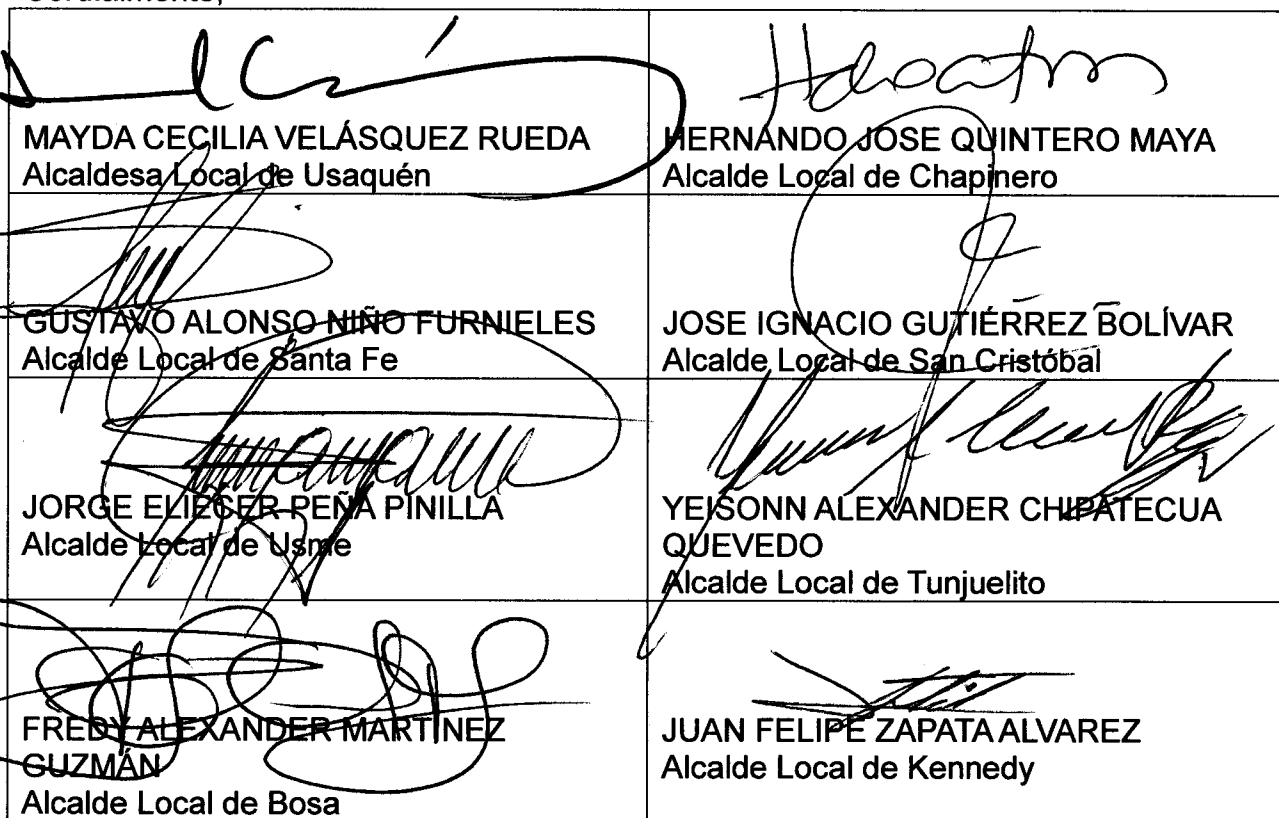 MAYDA CECILIA VELÁSQUEZ RUEDA
Alcaldesa Local de Usaquén
HERNANDO JOSE QUINTERO MAYA
Alcalde Local de Chapinero
GUSTAVO ALONSO NIÑO FURNIELES
Alcalde Local de Santa Fe
JOSE IGNACIO GUTIÉRREZ BOLÍVAR
Alcalde Local de San Cristóbal
JORGE ELIECER PEÑA PINILLA
Alcalde Local de Usme
YEISONN ALEXANDER CHIPATECUA
QUEVEDO
Alcalde Local de Tunjuelito
FREDY ALEXANDER MARTÍNEZ
GUZMÁN
Alcalde Local de Bosa
JUAN FELIPE ZAPATA ALVAREZ
Alcalde Local de Kennedy